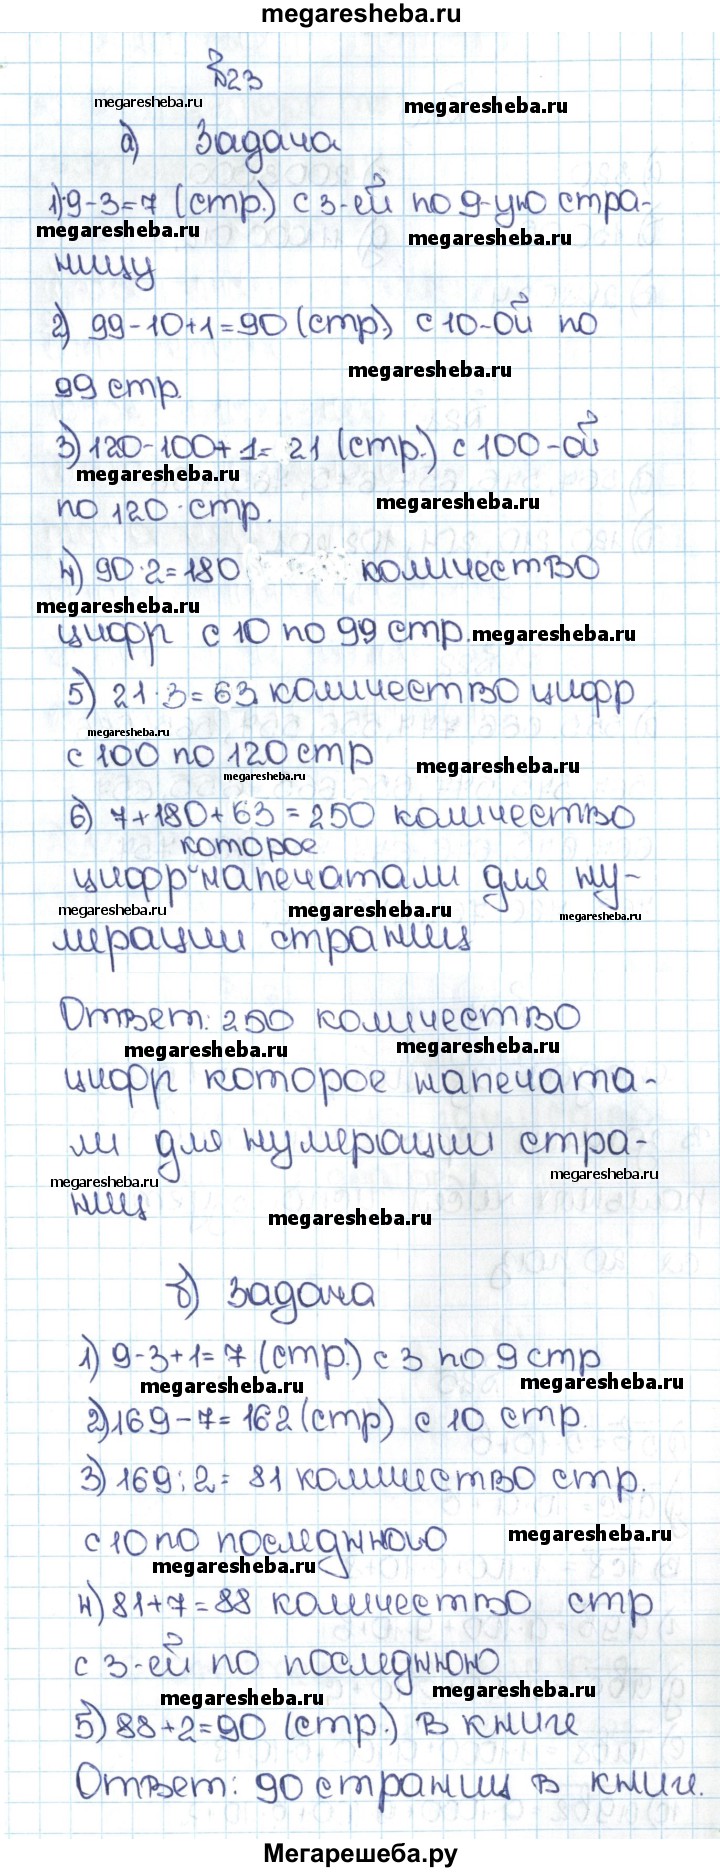 megaresheba.ru
№23
megaresheba.ru megaresheba.ru
а) Задача
1) 9-3=7 (стр.) с 3-ей по 9-ую стра-
megaresheba.ru megaresheba.ru
ницу
2) 99-10+1=90 (стр.) с 10-ой по
megaresheba.ru
99 стр.
3) 120-100+1=21 (стр.) с 100-ой
megaresheba.ru megaresheba.ru
по 120 стр.
4) 90·2=180 количество
megaresheba.ru
цифр с 10 по 99 стр. megaresheba.ru
5) 21·3=63 количество цифр
megaresheba.ru
с 100 по 120 стр megaresheba.ru
megaresheba.ru
6) 7+180+63=250 количество
которое
цифр напечатали для ну-
megaresheba.ru megaresheba.ru megaresheba.ru
мерации страниц
Ответ: 250 количество
megaresheba.ru megaresheba.ru
цифр которое напечата-
ли для нумерации стра-
megaresheba.ru megaresheba.ru
ниц
megaresheba.ru
б) Задача
1) 9-3+1=7 (стр.) с 3 по 9 стр
megaresheba.ru megaresheba.ru
2) 169-7=162 (стр) с 10 стр.
3) 169:2=81 количество стр.
с 10 по последнюю megaresheba.ru
megaresheba.ru
4) 81+7=88 количество стр
с 3-ей по последнюю
megaresheba.ru megaresheba.ru
5) 88+2=90 (стр.) в книге
Ответ: 90 страниц в книге.
Мегарешеба.ру